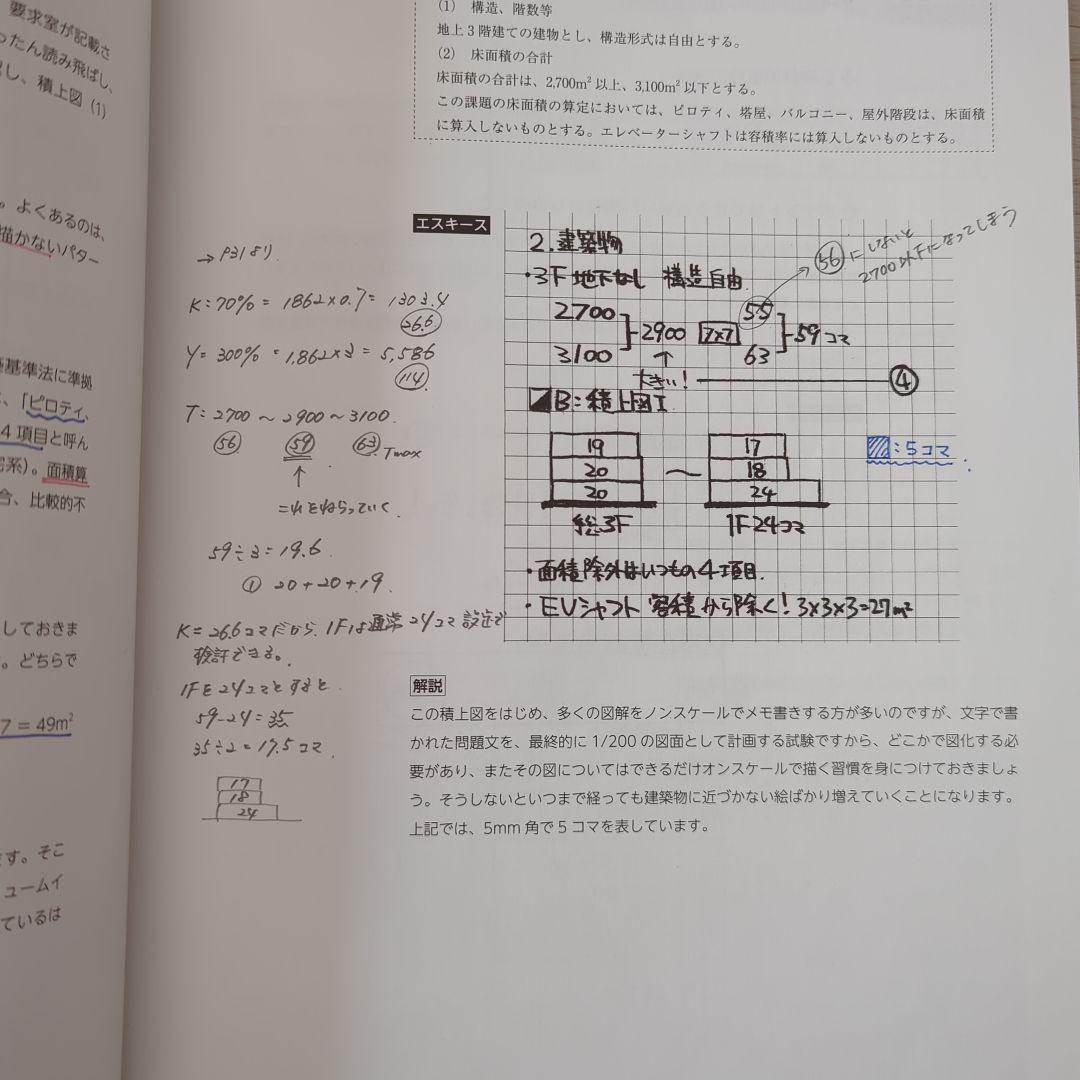 要求室が記載さ
ったん読み飛ばし、
し、積上図（1）
。よくあるのは、
描かないパター
基準法に準拠
、「ピロティ、
4 項目と呼ん
系）。面積算
合、比較的不
しておきま
。どちらで
7 = 49m²
す。そこ
ュームイ
ているは
(1) 構造、階数等
地上3階建ての建物とし、構造形式は自由とする。
(2) 床面積の合計
床面積の合計は、2,700m²以上、3,100m²以下とする。
この課題の床面積の算定においては、ピロティ、塔屋、バルコニー、屋外階段は、床面積
に算入しないものとする。エレベーターシャフトは容積率には算入しないものとする。
→ P31より
K:70% = 1862×0.7 = 1303.4
26.6
Y= 300% = 1,862×3 = 5,586
114
T:2700 〜 2900 〜 3100.
56 59 63 Tmax
↑
これをねらっていく.
59÷3=19.6.
① 20+20+19.
K= 26.6コマだから、1Fは通常24コマ設定で
検討できる。
1Fを24コマとすると.
59-24=35
35÷2=17.5コマ.
17
18
24
エスキース
2.建築物
・3F 地下なし 構造自由.
2700
3100
2900
7×7
55
63
59コマ
56にしないと
2700以下になってしまう
↑
大きい!
④
B:積上図I
19
20
20
総3F
〜
17
18
24
1F24コマ
:5コマ.
・面積除外はいつもの4項目.
・EVシャフト 容積から除く! 3×3×3=27m²
解説
この積上図をはじめ、多くの図解をノンスケールでメモ書きする方が多いのですが、文字で書
かれた問題文を、最終的に 1/200 の図面として計画する試験ですから、どこかで図化する必
要があり、またその図についてはできるだけオンスケールで描く習慣を身につけておきましょ
う。そうしないといつまで経っても建築物に近づかない絵ばかり増えていくことになります。
上記では、5mm 角で5コマを表しています。